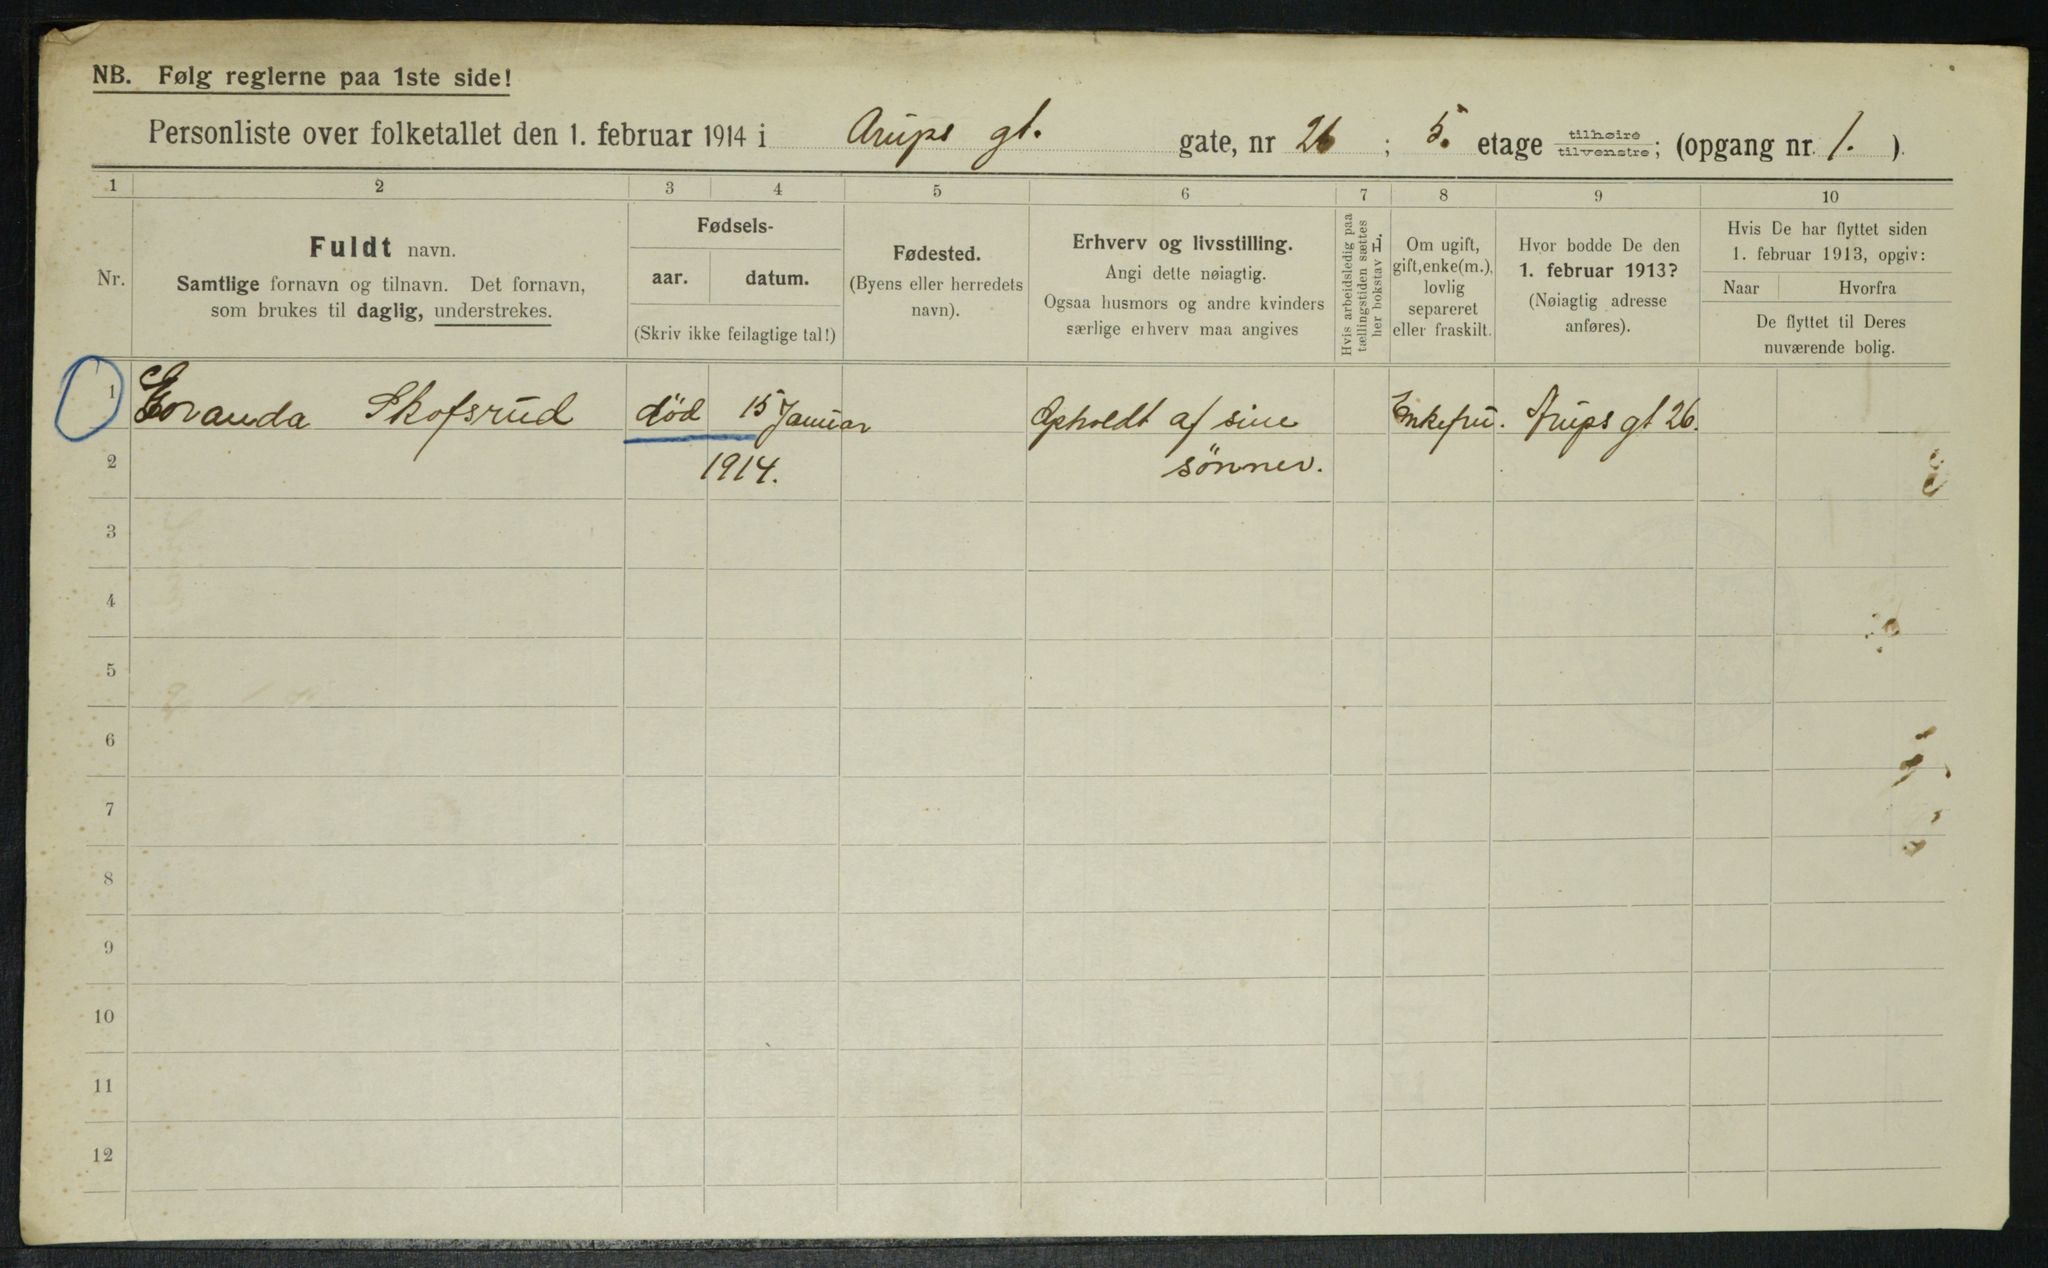 NB. Følg reglerne paa 1ste side!
Personliste over folketallet den 1. februar 1914 i Arups gt. gate, nr 26 ; 5. etage tilhøire tilvenstre; (opgang nr. 1. ).
1 2 3 4 5 6 7 8 9 10
Nr.
Fuldt navn.
Samtlige fornavn og tilnavn. Det fornavn,
som brukes til daglig, understrekes.
Fødsels-
aar. datum.
(Skriv ikke feilagtige tal!)
Fødested.
(Byens eller herredets
navn).
Erhverv og livsstilling.
Angi dette nøiagtig.
Ogsaa husmors og andre kvinders
særlige erhverv maa angives
Hvis arbeidsledig paa
tællingstiden sættes
her bokstav L.
Om ugift,
gift, enke(m.),
lovlig
separeret
eller fraskilt.
Hvor bodde De den
1. februar 1913?
(Nøiagtig adresse
anføres).
Hvis De har flyttet siden
1. februar 1913, opgiv:
Naar Hvorfra
De flyttet til Deres
nuværende bolig.
1 Skofsrud død 15 Januar Opholdt af sine Enkefru. Arups gt 26.
2 1914. sønner.
3
4
5
6
7
8
9
10
11
12